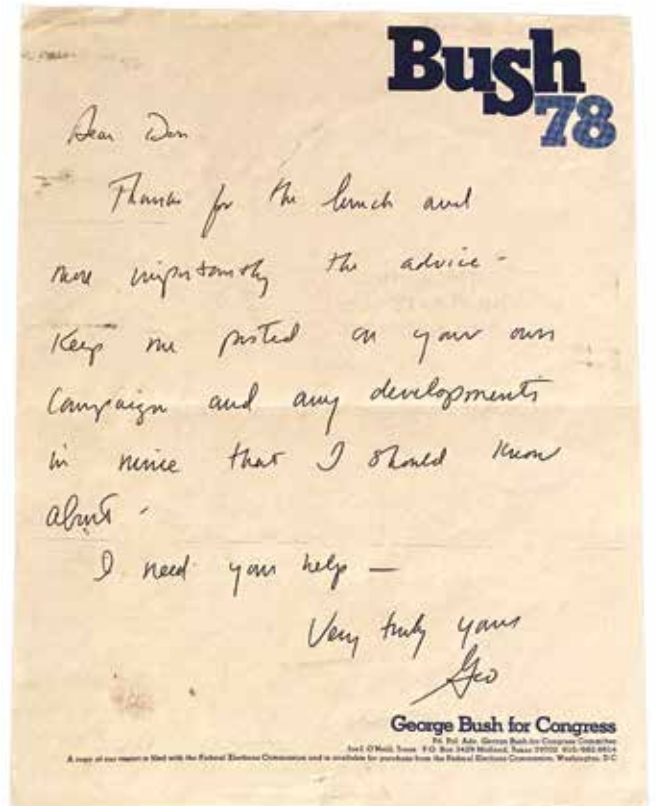 Bush
78
Dear Don
Thanks for the lunch and
more importantly the advice -
Keep me posted on your own
Campaign and any developments
in mine that I should know
about -
I need your help —
Very truly yours
Geo
George Bush for Congress
Pd. Pol. Adv. George Bush for Congress Committee
Joe I. O'Neill, Treas. P.O. Box 3429 Midland, Texas 79702
A copy of our report is filed with the Federal Elections Commission and is available for purchase from the Federal Elections Commission, Washington, D.C.